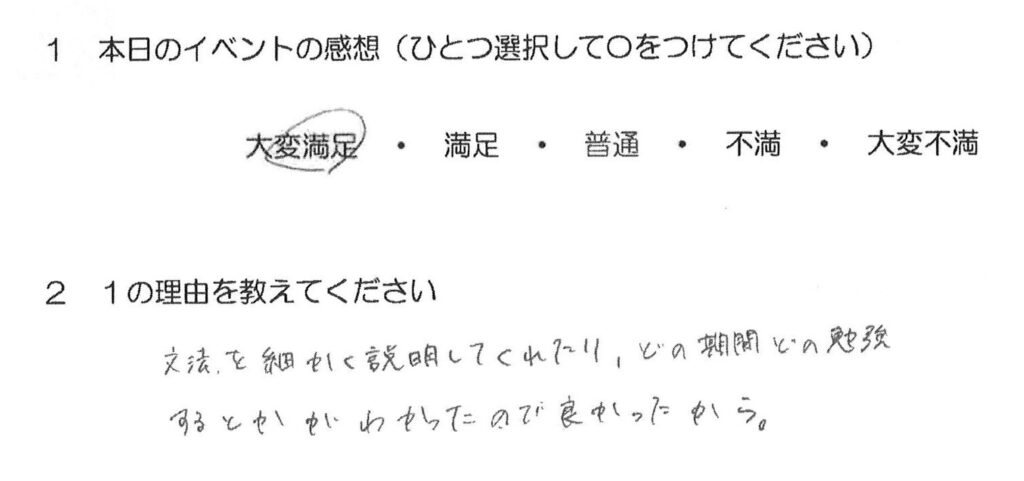 1 本日のイベントの感想（ひとつ選択して〇をつけてください）
大変満足 ・ 満足 ・ 普通 ・ 不満 ・ 大変不満
2 1の理由を教えてください
文法を細かく説明してくれたり、どの期間どの勉強
するとかがわかったので良かったから。